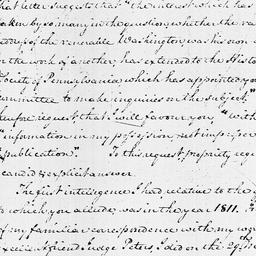 that letter suggests that "the interest which has
taken by so many in the question, whether the va
address of the venerable Washington was his own
or the work of another, has extended to the Histo
Society of Pennsylvania, which has appointed you
committee to make inquiries on the subject."
therefore request that I will favour you, "with
"information in my possession, not improper
"publication". To this request, propriety requ
candid & explicit answer.
The first intelligence I had, relative to the
to which you allude, was in the year 1811.
of my familiar correspondence with my wor
excellent friend Judge Peters, I did on the 29th